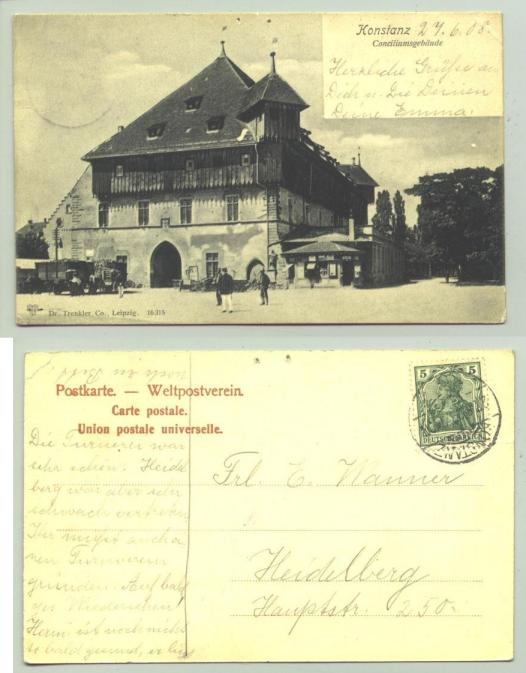 Konstanz 27.6.08.
Conciliumsgebäude
Herzliche Grüße an
Dich u. die Deinen
Deine Emma.
Dr. Trenkler Co., Leipzig. 16315
noch im Bett
Postkarte. — Weltpostverein.
Carte postale.
Union postale universelle.
5 5
DEUTSCHES REICH
KONSTANZ
Die Turnerei war
sehr schön. Heidel
berg war aber sehr
schwach vertreten
Ihr müßt auch a
nen Turnverein
gründen. Auf bald
ges Wiedersehen
Herm ist noch nicht
so bald gesund, er lieg
Frl. E. Wanner
Heidelberg
Hauptstr. 250.